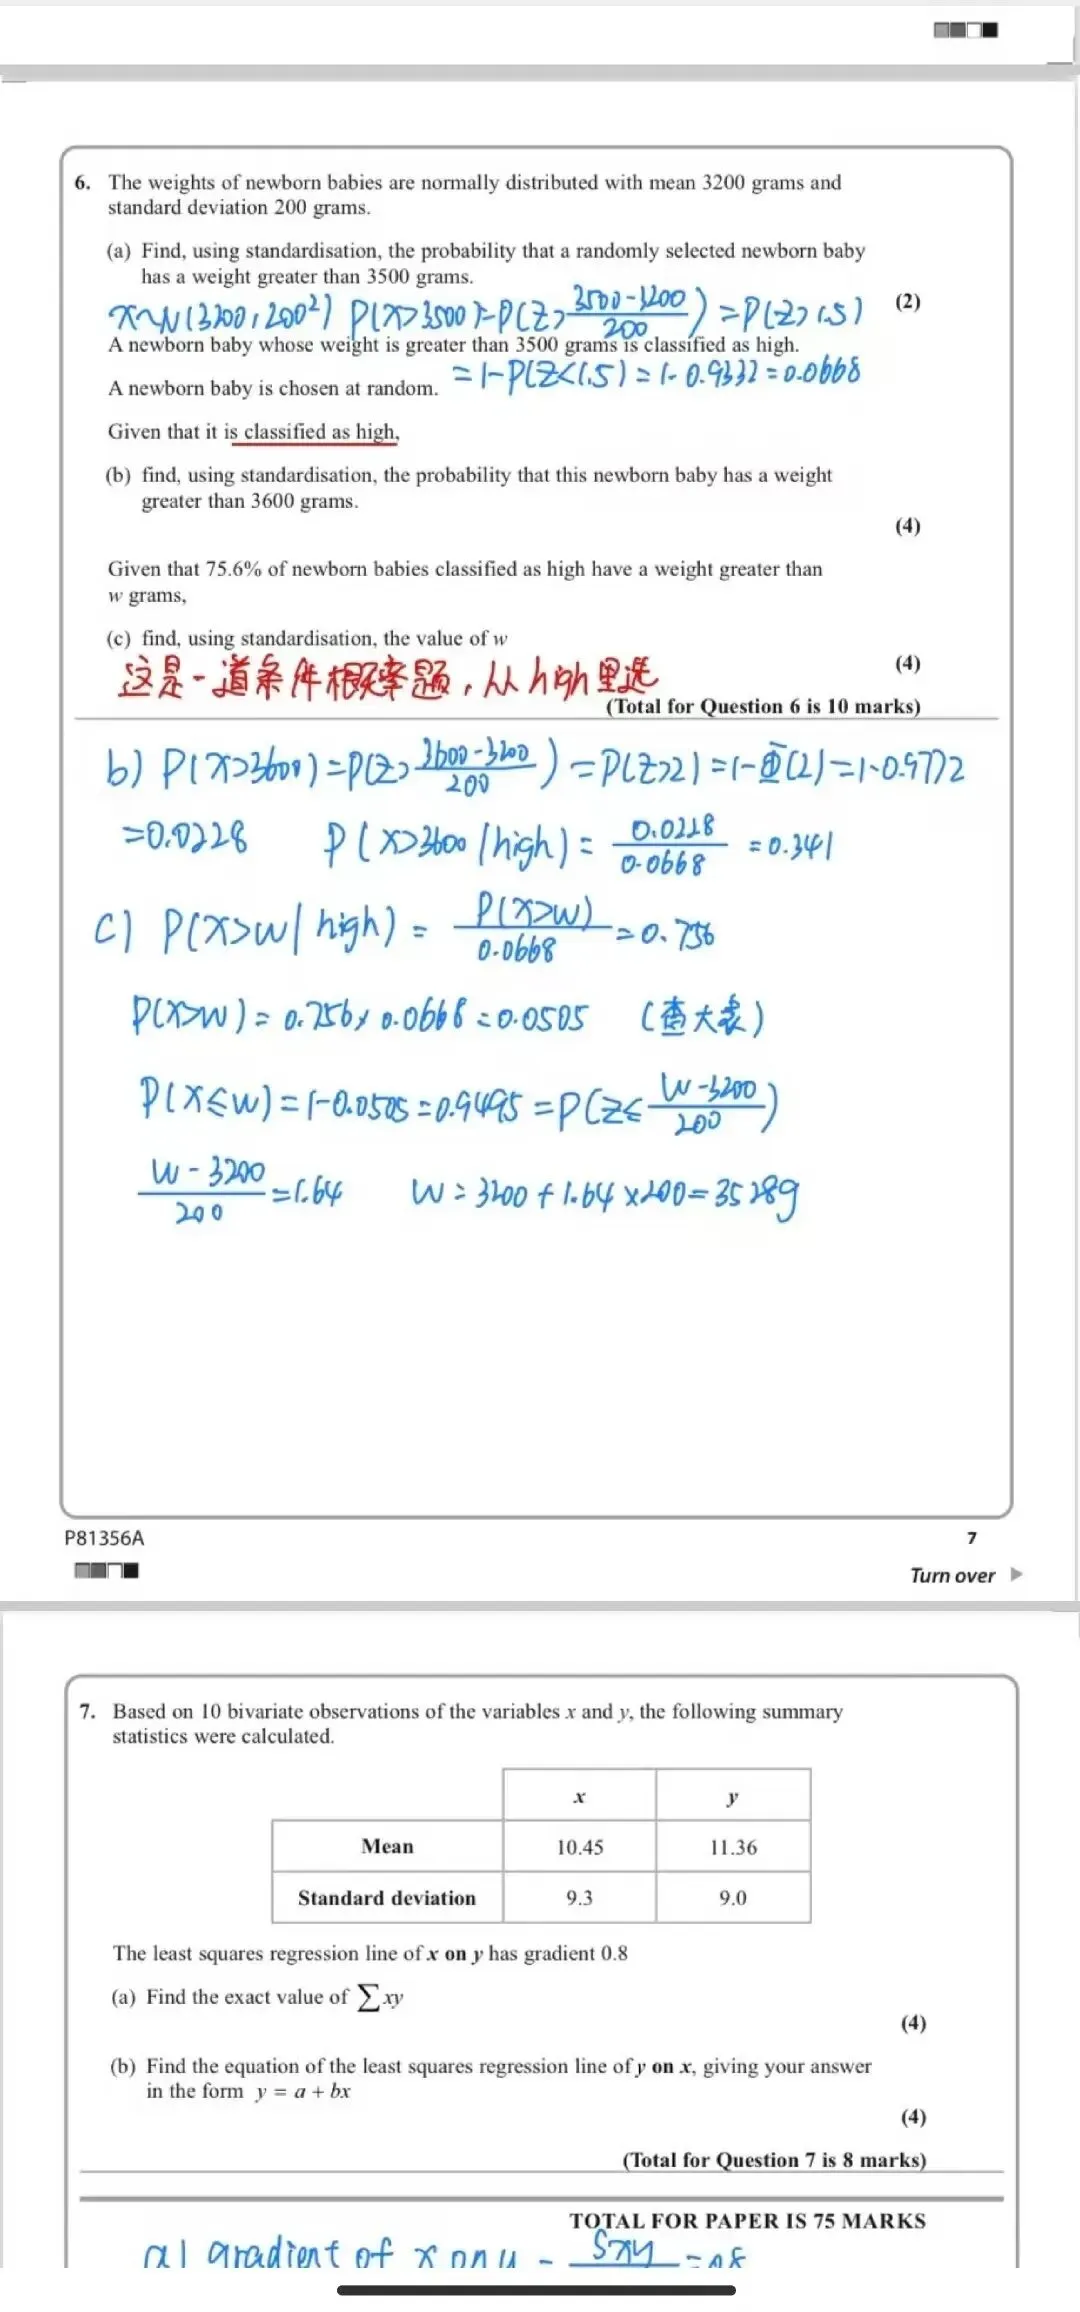 6. The weights of newborn babies are normally distributed with mean 3200 grams and
standard deviation 200 grams.
(a) Find, using standardisation, the probability that a randomly selected newborn baby
has a weight greater than 3500 grams.
(2)
X~N(3200, 200²) P(X>3500)=P(Z>\frac{3500-3200}{200})=P(Z>1.5)
A newborn baby whose weight is greater than 3500 grams is classified as high.
=1-P(Z<1.5)=1-0.9332=0.0668
A newborn baby is chosen at random.
Given that it is classified as high,
(b) find, using standardisation, the probability that this newborn baby has a weight
greater than 3600 grams.
(4)
Given that 75.6% of newborn babies classified as high have a weight greater than
w grams,
(c) find, using standardisation, the value of w
(4)
这是一道条件概率题，从high里选
(Total for Question 6 is 10 marks)
b) P(X>3600)=P(Z>\frac{3600-3200}{200})=P(Z>2)=1-Φ(2)=1-0.9772
=0.0228 P(X>3600|high)=\frac{0.0228}{0.0668}=0.341
c) P(X>w|high)=\frac{P(X>w)}{0.0668}=0.756
P(X>w)=0.756×0.0668=0.0505 (查大表)
P(X≤w)=1-0.0505=0.9495=P(Z≤\frac{w-3200}{200})
\frac{w-3200}{200}=1.64 w=3200+1.64×200=3528g
P81356A
7
Turn over
7. Based on 10 bivariate observations of the variables x and y, the following summary
statistics were calculated.
x y
Mean 10.45 11.36
Standard deviation 9.3 9.0
The least squares regression line of x on y has gradient 0.8
(a) Find the exact value of ∑xy
(4)
(b) Find the equation of the least squares regression line of y on x, giving your answer
in the form y = a + bx
(4)
(Total for Question 7 is 8 marks)
TOTAL FOR PAPER IS 75 MARKS
a) gradient of x on y = Sxy